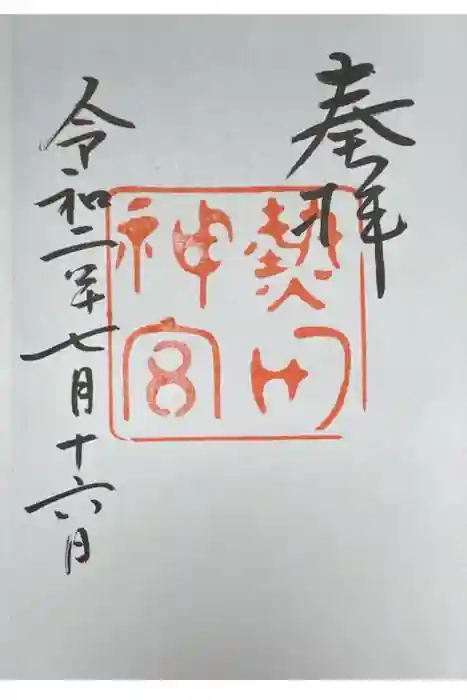 奉拝
熱田
神宮
令和二年七月十六日